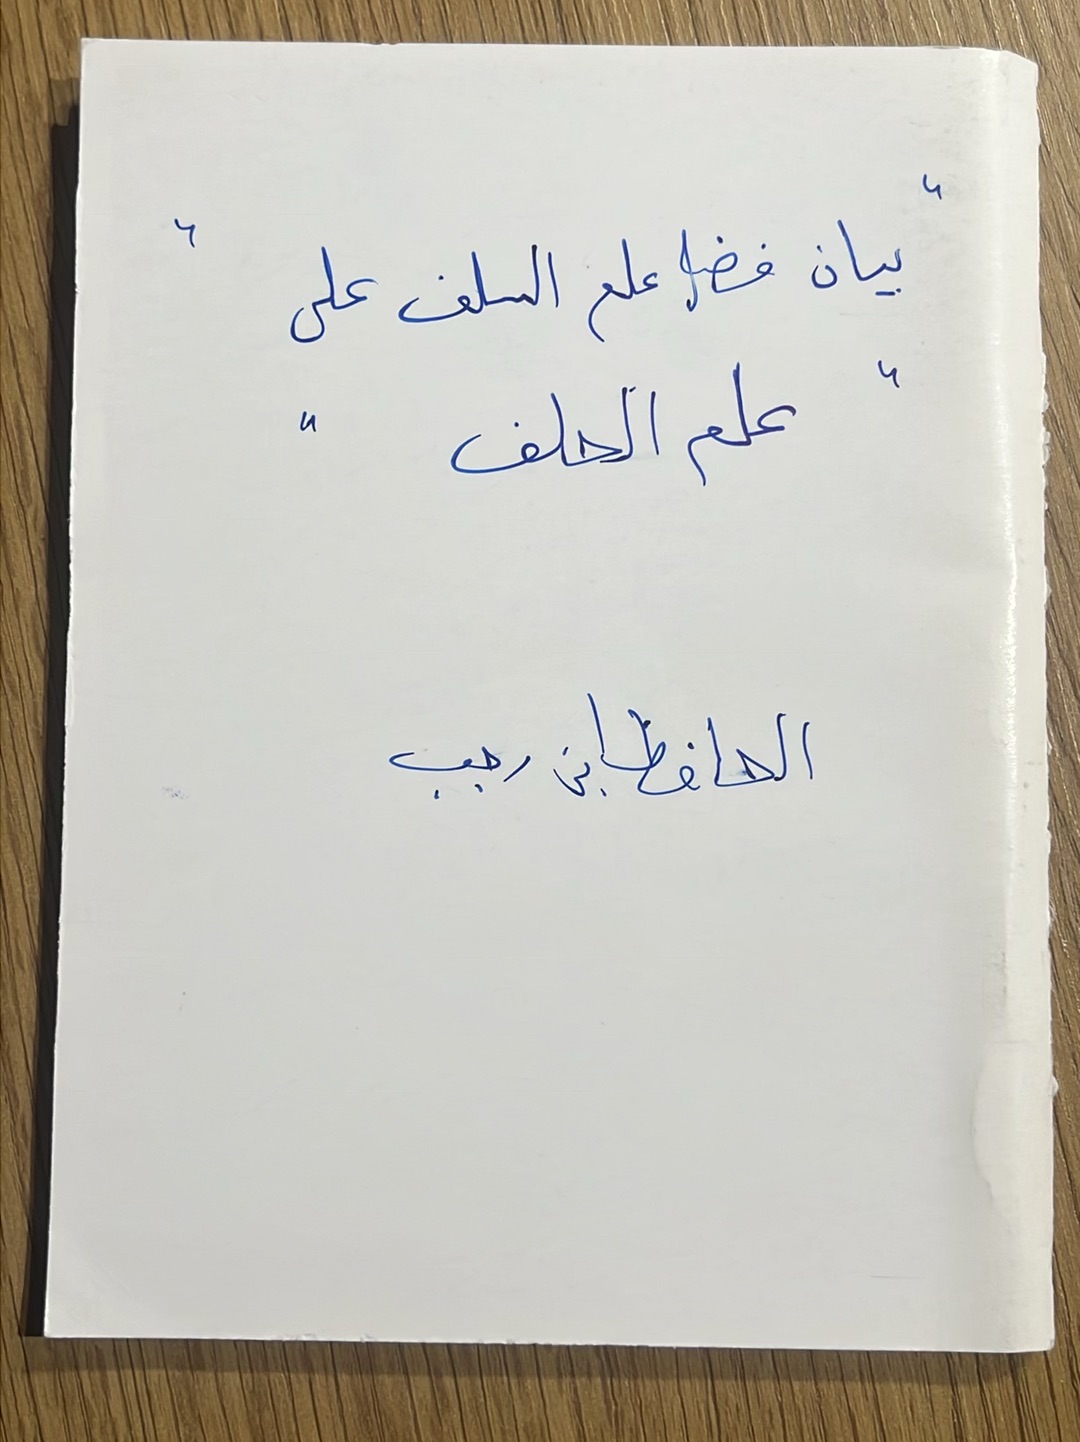 "بيان فضل علم السلف على"
"علم الخلف"
الحافظ ابن رجب